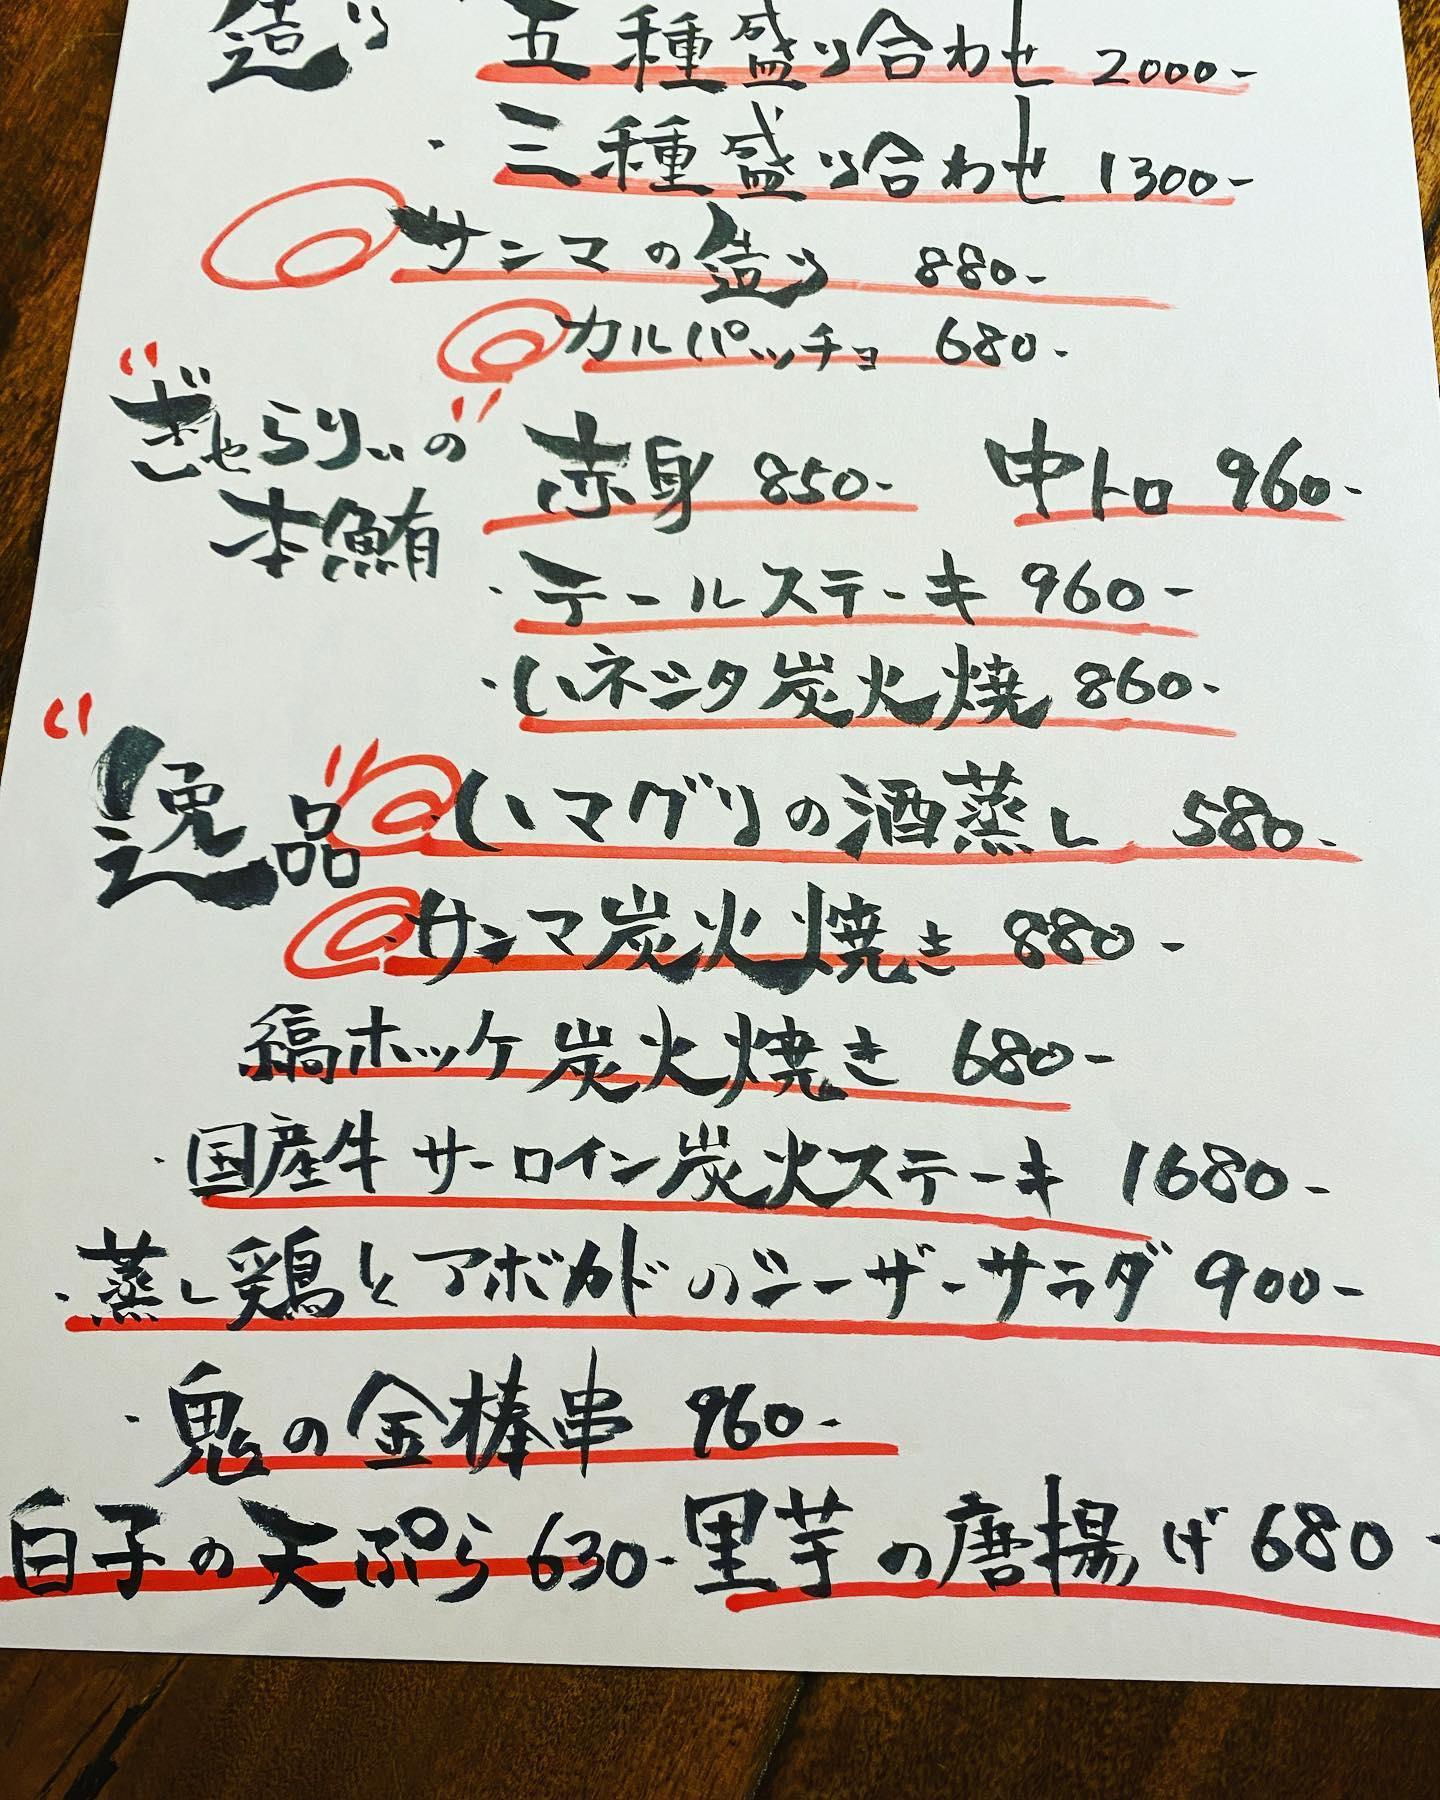 造り 五種盛り合わせ 2000-
・三種盛り合わせ 1300-
サンマの造り 880-
カルパッチョ 680-
"ぎゃらりぃの" 赤身 850- 中トロ 960-
本鮪
・テールステーキ 960-
・ハネシタ炭火焼 860-
"逸品" ・ハマグリの酒蒸し 580-
・サンマ炭火焼き 880-
縞ホッケ炭火焼き 680-
・国産牛サーロイン炭火ステーキ 1680-
・蒸し鶏とアボカドのシーザーサラダ 900-
・鬼の金棒串 960-
白子の天ぷら 630-・里芋の唐揚げ 680-